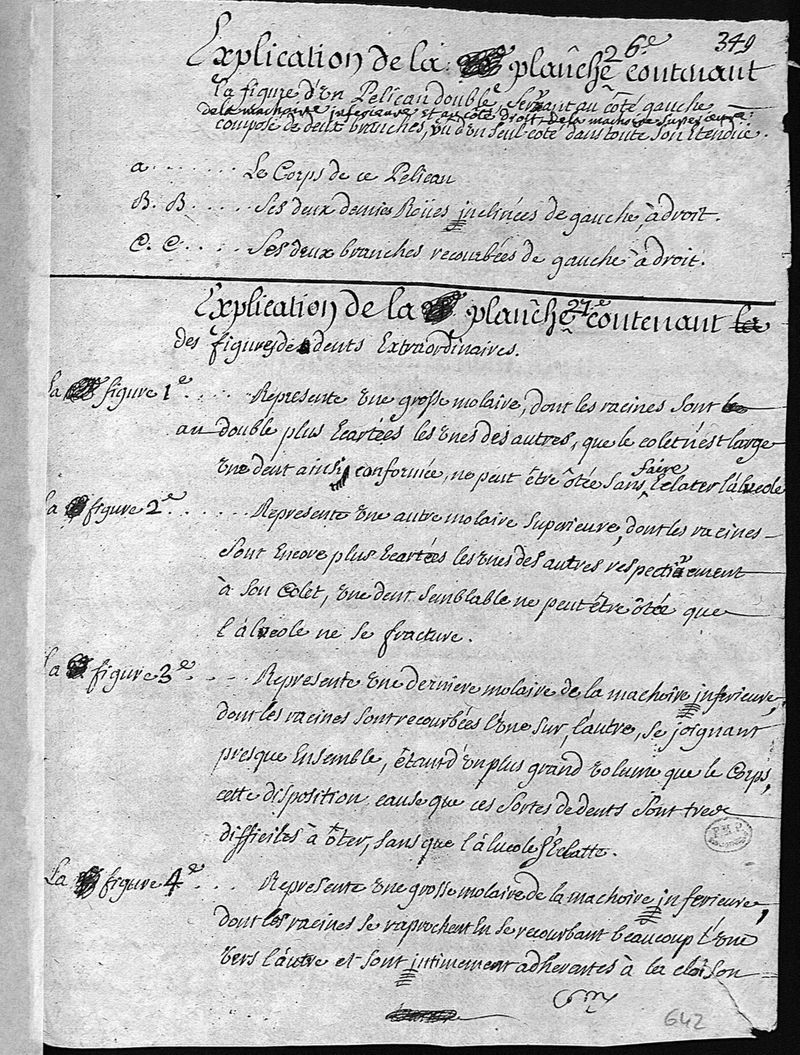 349
Explication de la planche 26.e contenant
la figure d'un Pelican double, servant au côté gauche
de la machoire inferieure et au côté droit de la machoire superieure:
composé de deux branches, vû d'un seul côté dans toute son Etendüe.
a ....... Le Corps de ce Pelican
B. B. ..... Ses deux demies Roües inclinées de gauche, à droit.
C. C. .... Ses deux branches recourbées de gauche à droit.
Explication de la planche 27.e contenant la
des figures de dents Extraordinaires.
La figure 1.e .... Represente une grosse molaire, dont les racines sont
au double plus Ecartées les unes des autres, que le colet n'est large
une dent ainsi conformée, ne peut être ôtée sans faire Eclater l'alveole
La figure 2.e ...... Represente une autre molaire Superieure, dont les racines
sont Encore plus Ecartées les unes des autres respectivement
à son Colet, une dent semblable ne peut être ôtée que
l'alveole ne se fracture.
La figure 3.e .... Represente une derniere molaire de la machoire inferieure,
dont les racines sont recourbées l'une sur l'autre, se joignant
presque Ensemble, étant d'un plus grand volume que le Corps,
cette disposition cause que ces sortes de dents sont tres
difficiles à ôter, sans que l'alveole s'Eclatte.
La figure 4.e .... Represente une grosse molaire de la machoire inferieure,
dont les racines se raprochent En se recourbant beaucoup l'une
vers l'autre et sont intimement adherantes à la cloison
642